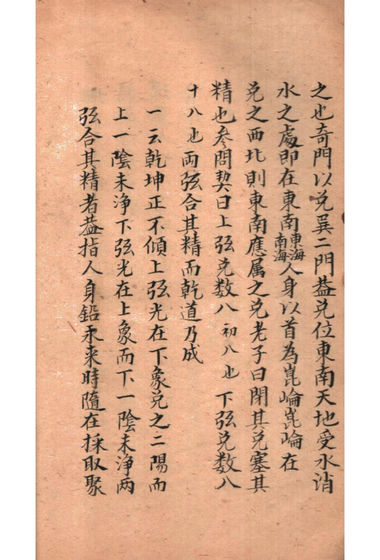 之也奇門以兌巽二門蓋兌位東南天地受水消
水之處即在東南東海南海人身以首為崑崙崑崙在
兌之西北則東南應属之兌老子曰閉其兌塞其
精也參問契曰上弦兌数八初八也下弦兌数八
十八也两弦合其精而乾道乃成
一云乾坤正不傾上弦光在下象兌之二陽而
上一陰未净下弦光在上象而下一陰未净两
弦合其精者蓋指人身鉛汞来時隨在採取聚